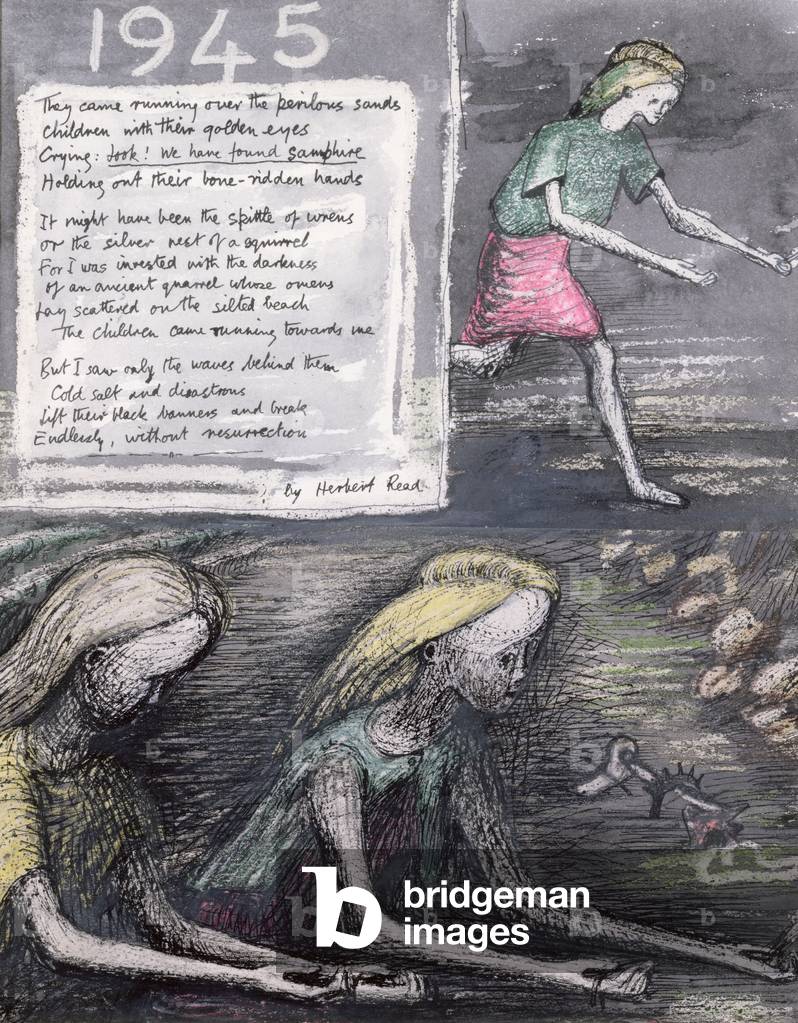 1945
They came running over the perilous sands
Children with their golden eyes
Crying: Look! We have found samphire
Holding out their bone-ridden hands
It might have been the spittle of wrens
or the silver nest of a squirrel
For I was invested with the darkness
of an ancient quarrel whose omens
Lay scattered on the silted beach
The children came running towards me
But I saw only the waves behind them
Cold salt and disastrous
Lift their black banners and break
Endlessly, without resurrection
by Herbert Read
b bridgeman
images